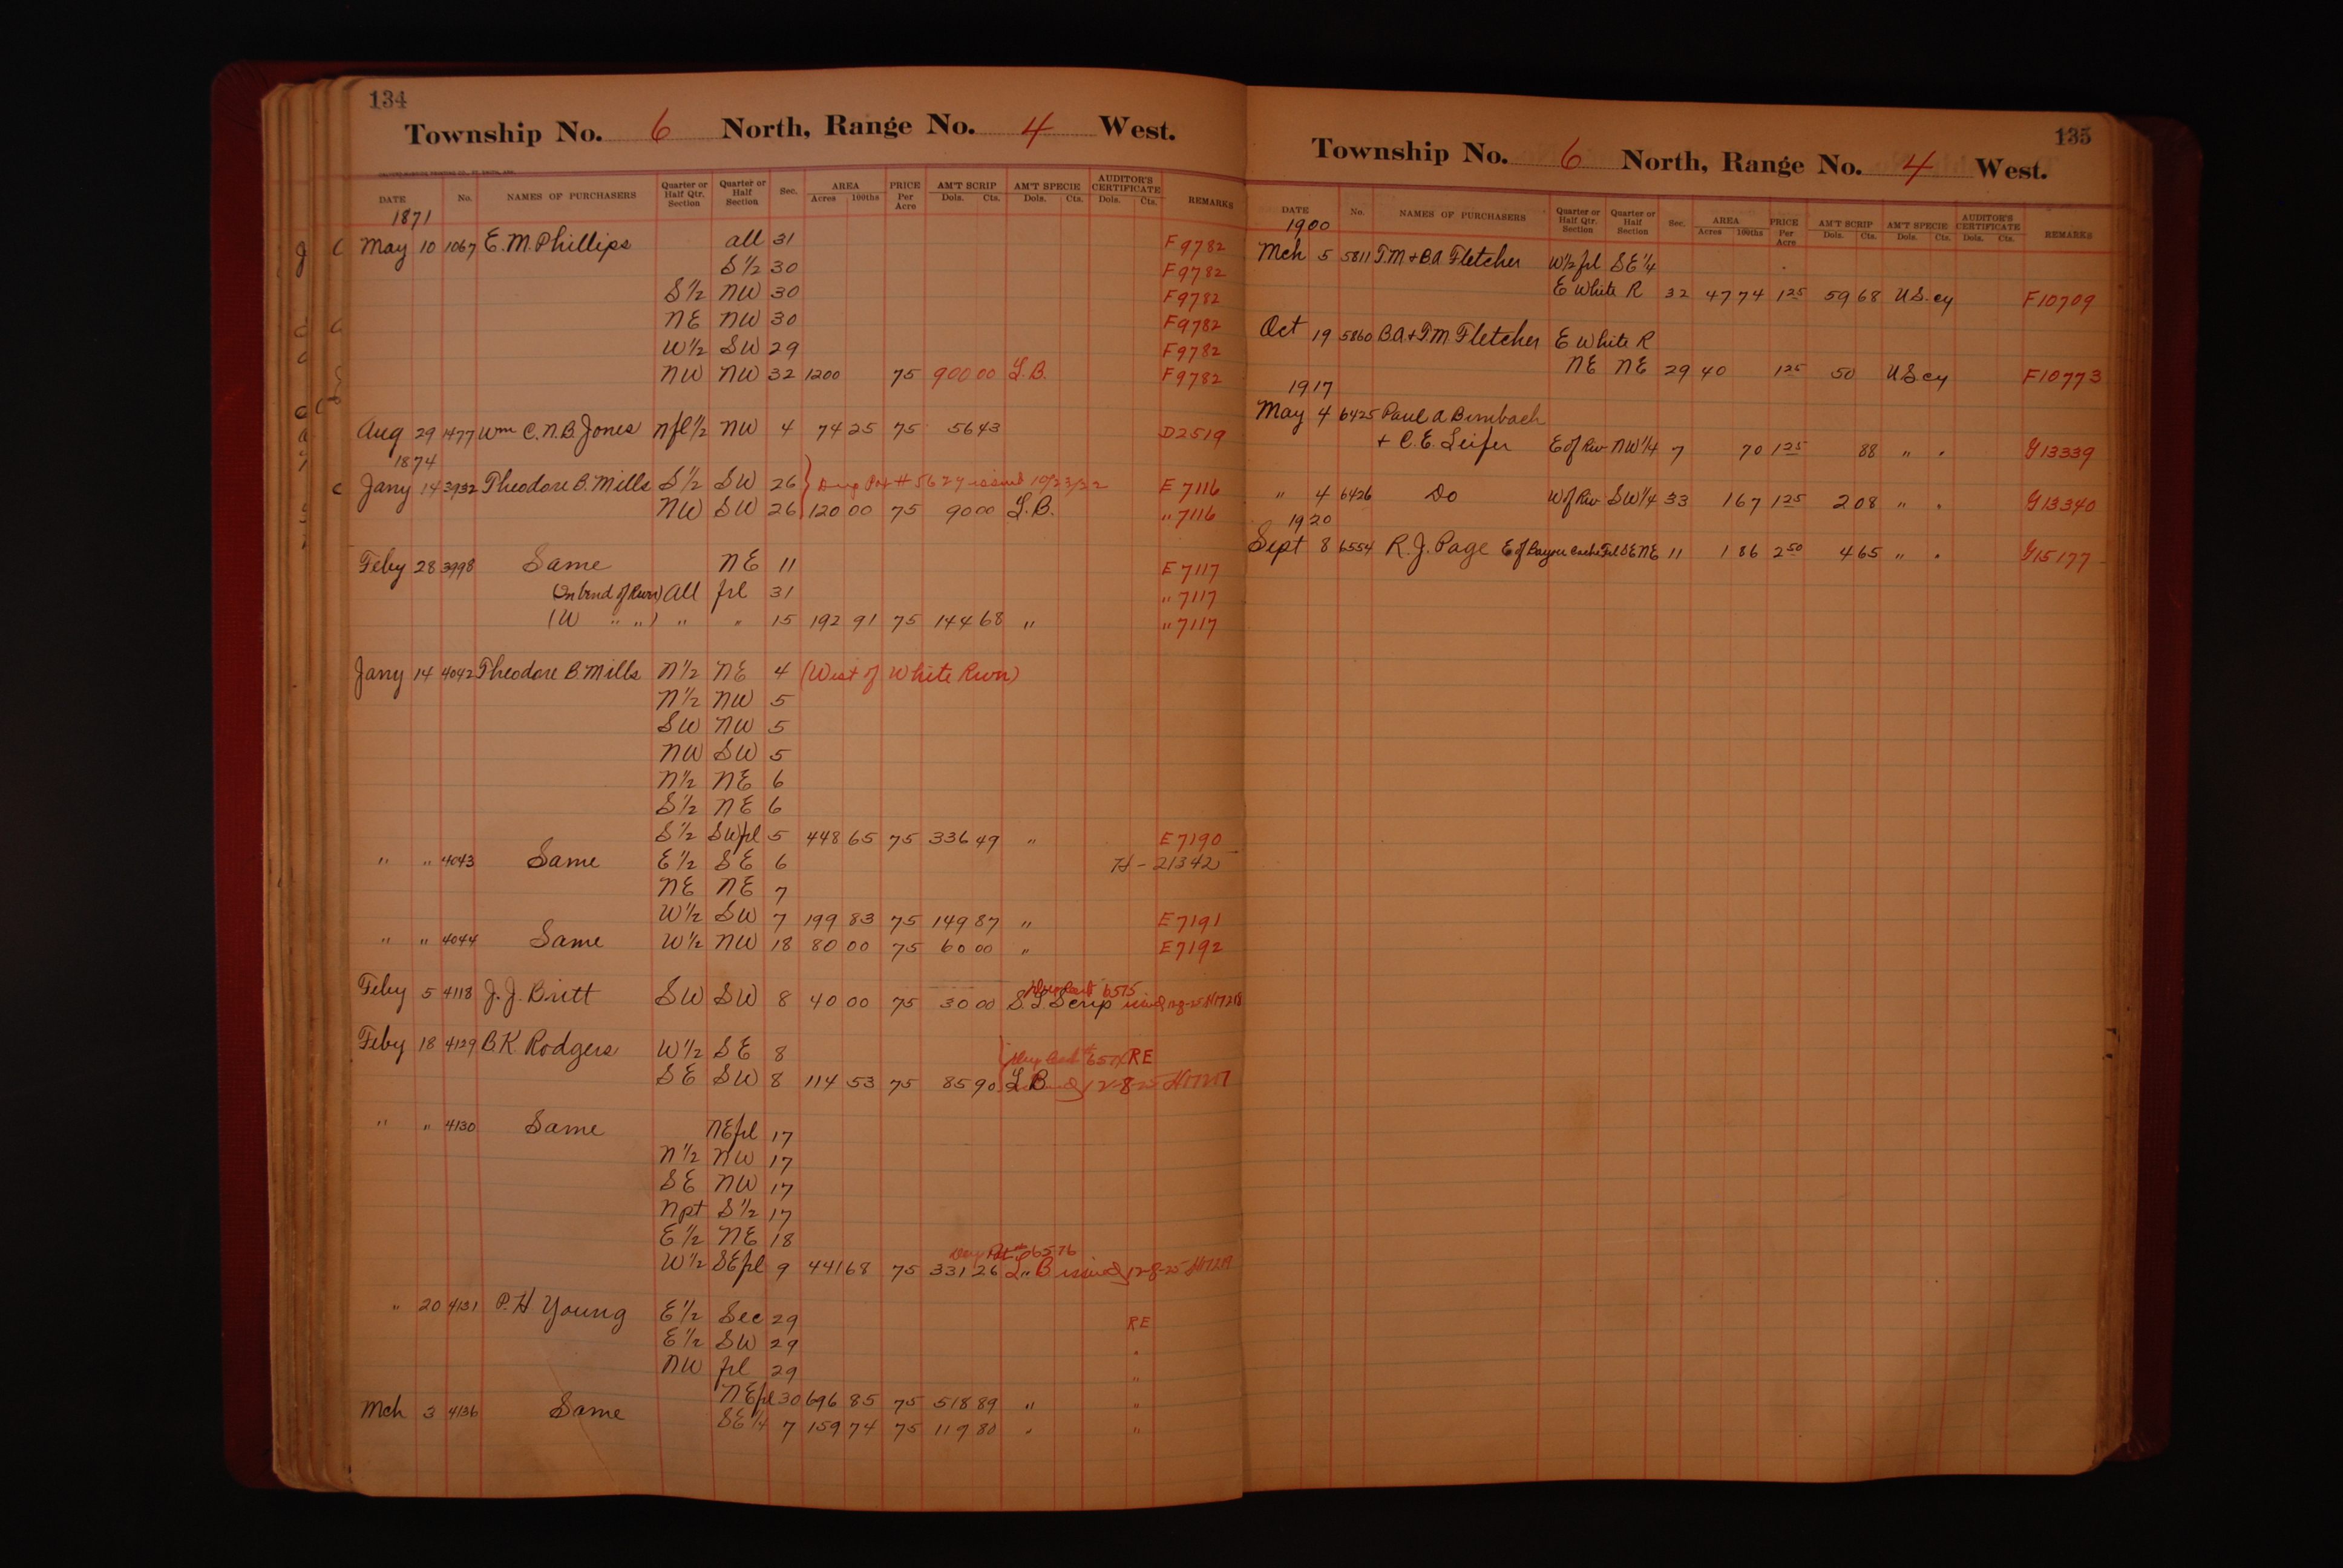 134
Township No. 6 North, Range No. 4 West.
DATE No. NAMES OF PURCHASERS Quarter or Half Qtr. Section Quarter or Half Section Sec. AREA Acres 100ths PRICE Per Acre AM'T SCRIP Dols. Cts. AM'T SPECIE Dols. Cts. AUDITOR'S CERTIFICATE Dols. Cts. REMARKS
1871
May 10 1067 E. M. Phillips all 31 F 9782
S½ 30 F 9782
S½ NW 30 F 9782
NE NW 30 F 9782
W½ SW 29 F 9782
NW NW 32 1200 75 900 00 L.B. F 9782
Aug 29 1477 Wm C. N. B. Jones Nfl½ NW 4 74 25 75 56 43 D 2519
1874
Jany 14 3932 Theodore B. Mills S½ SW 26 Dup Pat # 5627 issued 10/23/22 E 7116
NW SW 26 120 00 75 90 00 L.B. " 7116
Feby 28 3998 Same NE 11 E 7117
(In bend of River) All frl 31 " 7117
(W " ") " " 15 192 91 75 144 68 " " 7117
Jany 14 4042 Theodore B. Mills N½ NE 4 (West of White River)
N½ NW 5
SW NW 5
NW SW 5
N½ NE 6
S½ NE 6
S½ SWfrl 5 448 65 75 336 49 " E 7190
" " 4043 Same E½ SE 6 H - 21342
NE NE 7
W½ SW 7 199 83 75 149 87 " E 7191
" " 4044 Same W½ NW 18 80 00 75 60 00 " E 7192
Feby 5 4118 J. J. Britt SW SW 8 40 00 75 30 00 S. L. Scrip 6575 issued 12-8-25
Feby 18 4129 B. K. Rodgers W½ SE 8 RE
SE SW 8 114 53 75 85 90 L B issued 12-8-25
" " 4130 Same NEfrl 17
N½ NW 17
SE NW 17
Npt S½ 17
E½ NE 18
Dup Pat # 6576
W½ SEfrl 9 441 68 75 331 26 L " B issued 12-8-25
" 20 4131 P. H Young E½ Sec 29 RE
E½ SW 29 "
NW frl 29 "
NEfrl 30 696 85 75 518 89 " "
Mch 3 4136 Same SE¼ 7 159 74 75 119 80 " "
135
Township No. 6 North, Range No. 4 West.
DATE No. NAMES OF PURCHASERS Quarter or Half Qtr. Section Quarter or Half Section Sec. AREA Acres 100ths PRICE Per Acre AM'T SCRIP Dols. Cts. AM'T SPECIE Dols. Cts. AUDITOR'S CERTIFICATE Dols. Cts. REMARKS
1900
Mch 5 5811 T. M + B A Fletcher W½ frl SE¼
E White R 32 47 74 1 25 59 68 U.S. cy F 10709
Oct 19 5860 B. A. + T. M. Fletcher E White R
NE NE 29 40 1 25 50 U S cy F 10773
1917
May 4 6425 Paul A Bimbach
+ C. E. Leifer E of Riv NW¼ 7 70 1 25 88 " " G 13339
" 4 6426 Do W of Riv SW¼ 33 1 67 1 25 2 08 " " G 13340
1920
Sept 8 6554 R. J. Page E of Bayou Cache Frl SE NE 11 1 86 2 50 4 65 " " G 15177